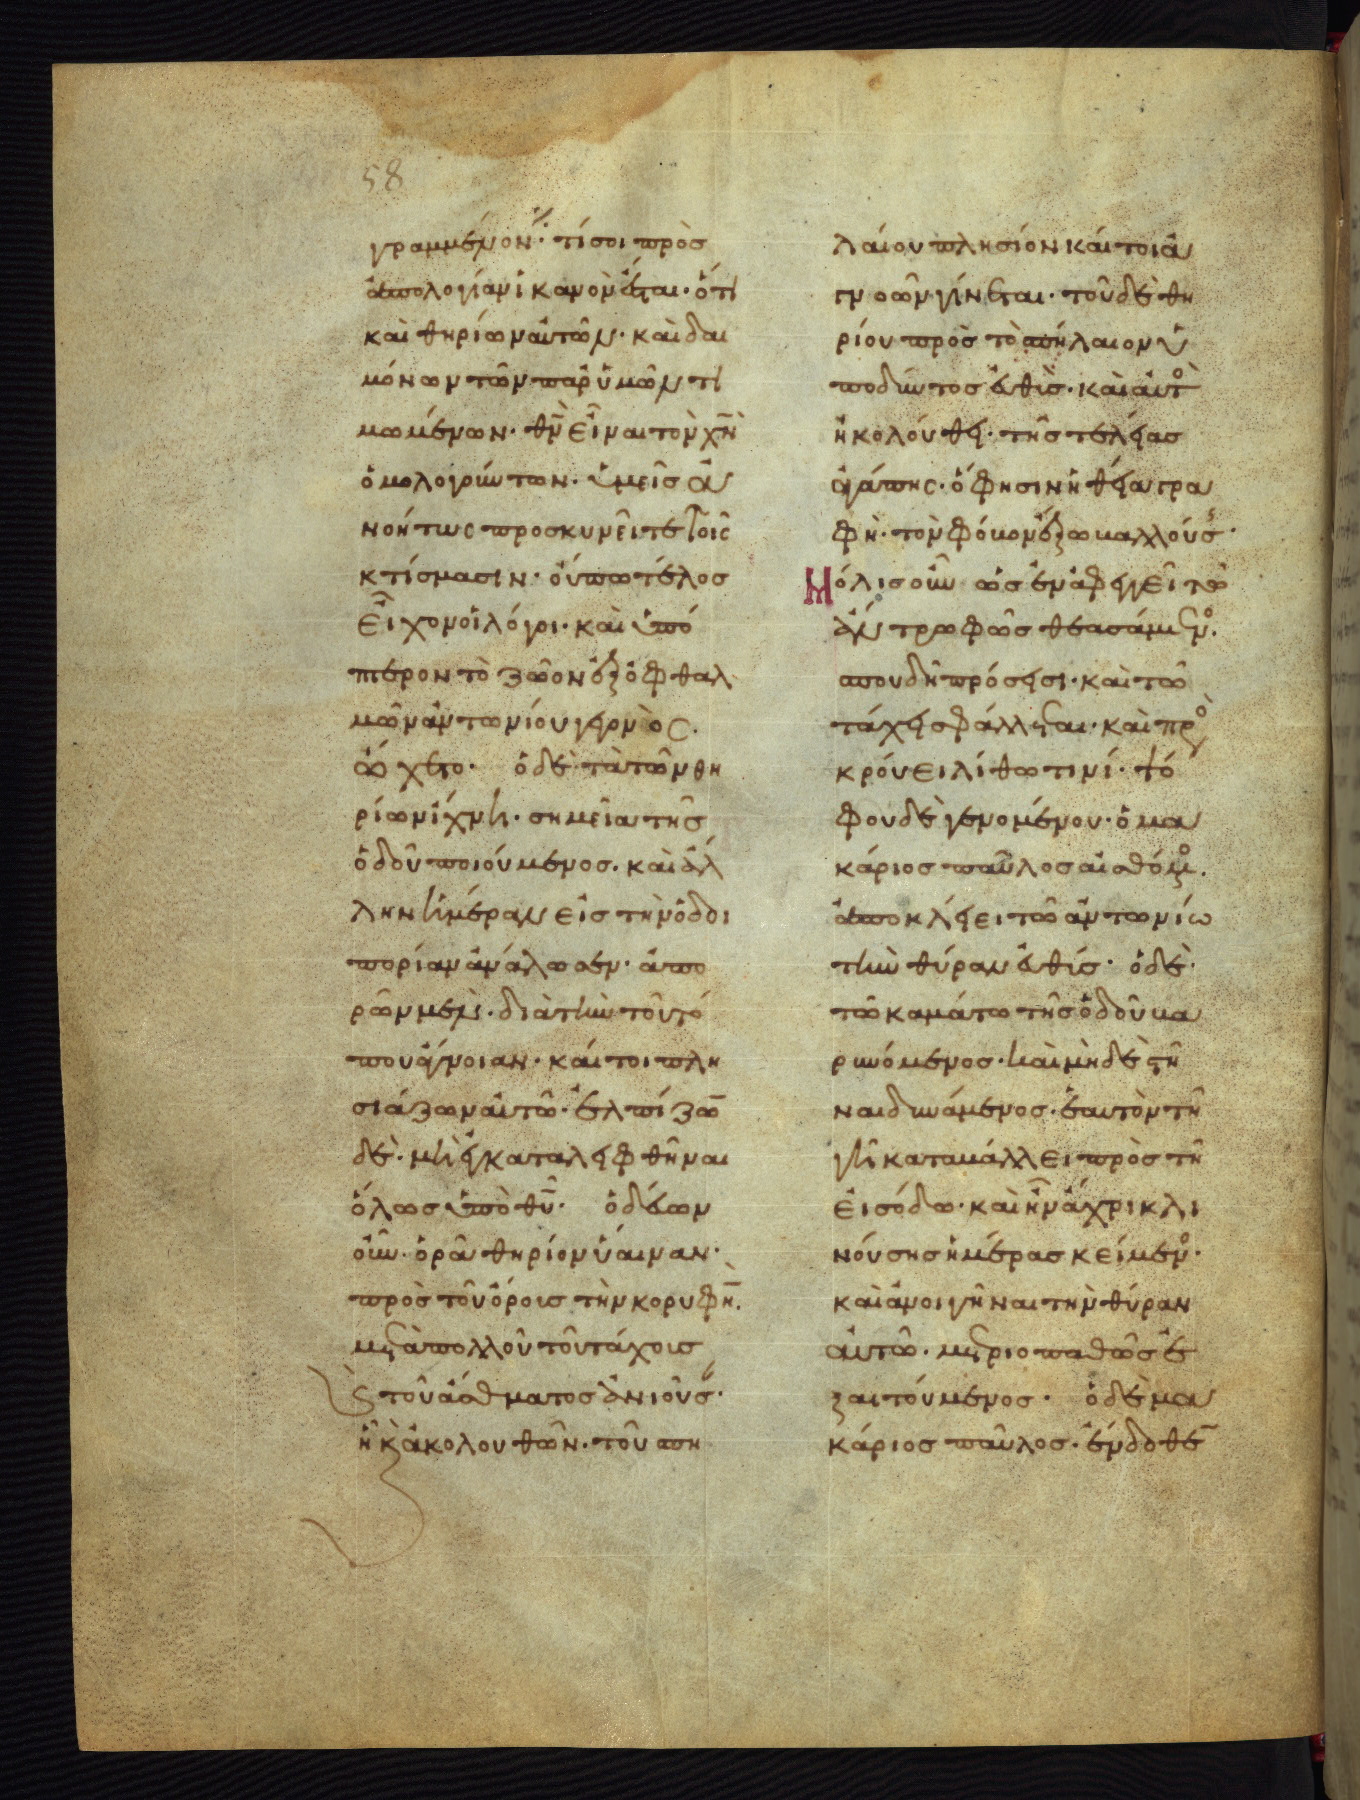 58
γραμμένον· τί σοι πρὸς
ἀπολογίαν ἱκανὸν ἔσται· ὅτι
καὶ θηρίων αὐτῶν· καὶ δαι
μόνων τῶν παρ' ὑμῶν τι
μωμένων· θν̅ εἶναι τὸν χν̅
ὁμολογούντων· ὑμεῖς ἀ
νοήτως προσκυνεῖτε τοῖς
κτίσμασιν· οὔπω τέλος
εἶχον οἱ λόγοι· καὶ ὑπό
πτερον τὸ ζῶον ἐξ ὀφθαλ
μῶν ἀντωνίου γεγονὸς.
ᾤχετο· ὁ δὲ τὰ τῶν θη
ρίων ἴχνη· σημεῖα τῆς
ὁδοῦ ποιούμενος. καὶ ἄλ
λην ἡμέραν εἰς τὴν ὁδοι
πορίαν ἀνάλωσεν· ἀπο
ρῶν μὲν· διὰ τὴν τοῦ τό
που ἄγνοιαν· καίτοι πλη
σιάζων αὐτῶ· ἐλπίζω̅
δὲ· μὴ ἐγκαταλειφθῆναι
ὅλως ὑπὸ θυ̅· ὁδεύων
οὖν· ὁρᾶ θηρίον ὕαιναν·
πρὸς τοῦ ὄρους τὴν κορυφὴ̅.
μετὰ πολλοῦ τοῦ τάχους
καὶ τοῦ ἄσθματος ἀνιοῦσ·
ἧ κἀκολουθῶν· τοῦ σπη
λαίου πλησίον καίτοι ἀ
γνοῶν γίνεται· τοῦ δὲ θη
ρίου πρὸς τὸ σπήλαιον ὑ
ποδύντος εὐθὺς· καὶ αὐτὸς
ἠκολούθει· τῆς τελείας
ἀγάπης· ὅ φησιν ἡ θεία γρα
φὴ· τὸν φόβον ἔξω βαλλούσης·
Μόλις οὖν ὡς ἐναφεγγεῖ τῶ
ἄντρω φῶς θεασάμενος.
σπουδῆ πρόσεισι· καὶ τῶ
τάχει σφάλλεται· καὶ προς
κρούει λίθω τινί· ψό
φου δὲ γενομένου· ὁ μα
κάριος παῦλος αἰσθόμενος.
ἀποκλείει τῶ ἀντωνίω
τὴν θύραν εὐθύς· ὁ δὲ·
τῶ καμάτω τῆς ὁδοῦ βα
ρυνόμενος· καὶ μηδὲ στῆ
ναι δυνάμενος· ἑαυτὸν τῆ
γῆ καταβάλλει πρὸς τῆ
εἰσόδω· καὶ ἦν ἄχρι κλι
νούσης ἡμέρας κείμενος·
καὶ ἀνοιγῆναι τὴν θύραν
αὐτῶ· μετριοπαθῶς ἐ
ξαιτούμενος· ὁ δὲ μα
κάριος παῦλος· ἔνδοθε̅